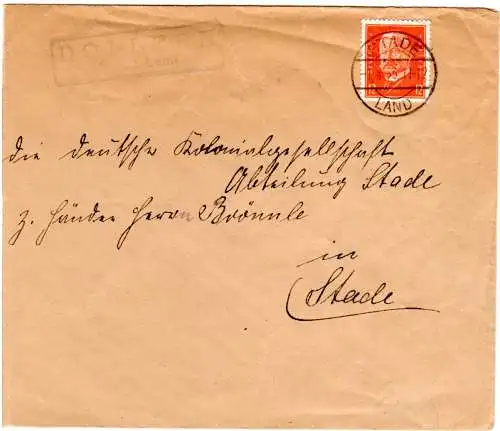 STADE
LAND
12 12
Land
die Deutsche Kolonialgesellschaft
Abteilung Stade
z. Händen Herrn Brönnle
in
Stade